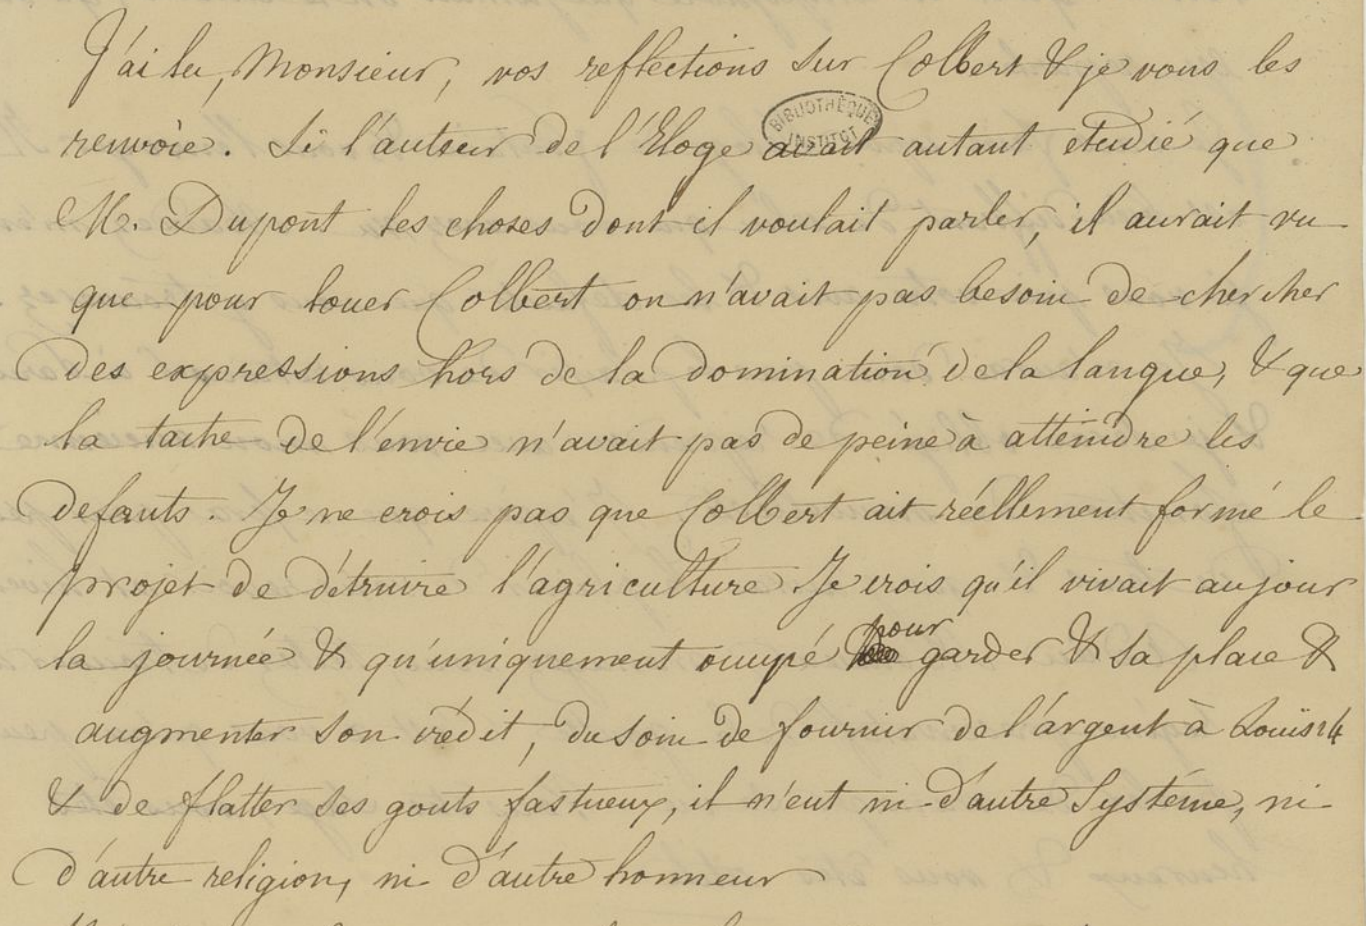 J'ai lu, Monsieur, vos reflections sur Colbert & je vous les
BIBLIOTHÈQUE
INSTITUT
renvoïe. Si l'auteur de l'Eloge avait autant etudié que
M. Dupont les choses dont il voulait parler, il aurait vu
que pour louer Colbert on n'avait pas besoin de chercher
des expressions hors de la domination de la langue, & que
la tache de l'envie n'avait pas de peine à atteindre les
defauts. Je ne crois pas que Colbert ait réellement formé le
projet de détruire l'agriculture. Je crois qu'il vivait au jour
la journée & qu'uniquement occupé pour garder & sa place &
augmenter son crédit, du soin de fournir de l'argent à Louis 14
& de flatter ses gouts fastueux, il n'eut ni d'autre Système, ni
d'autre religion, ni d'autre honneur